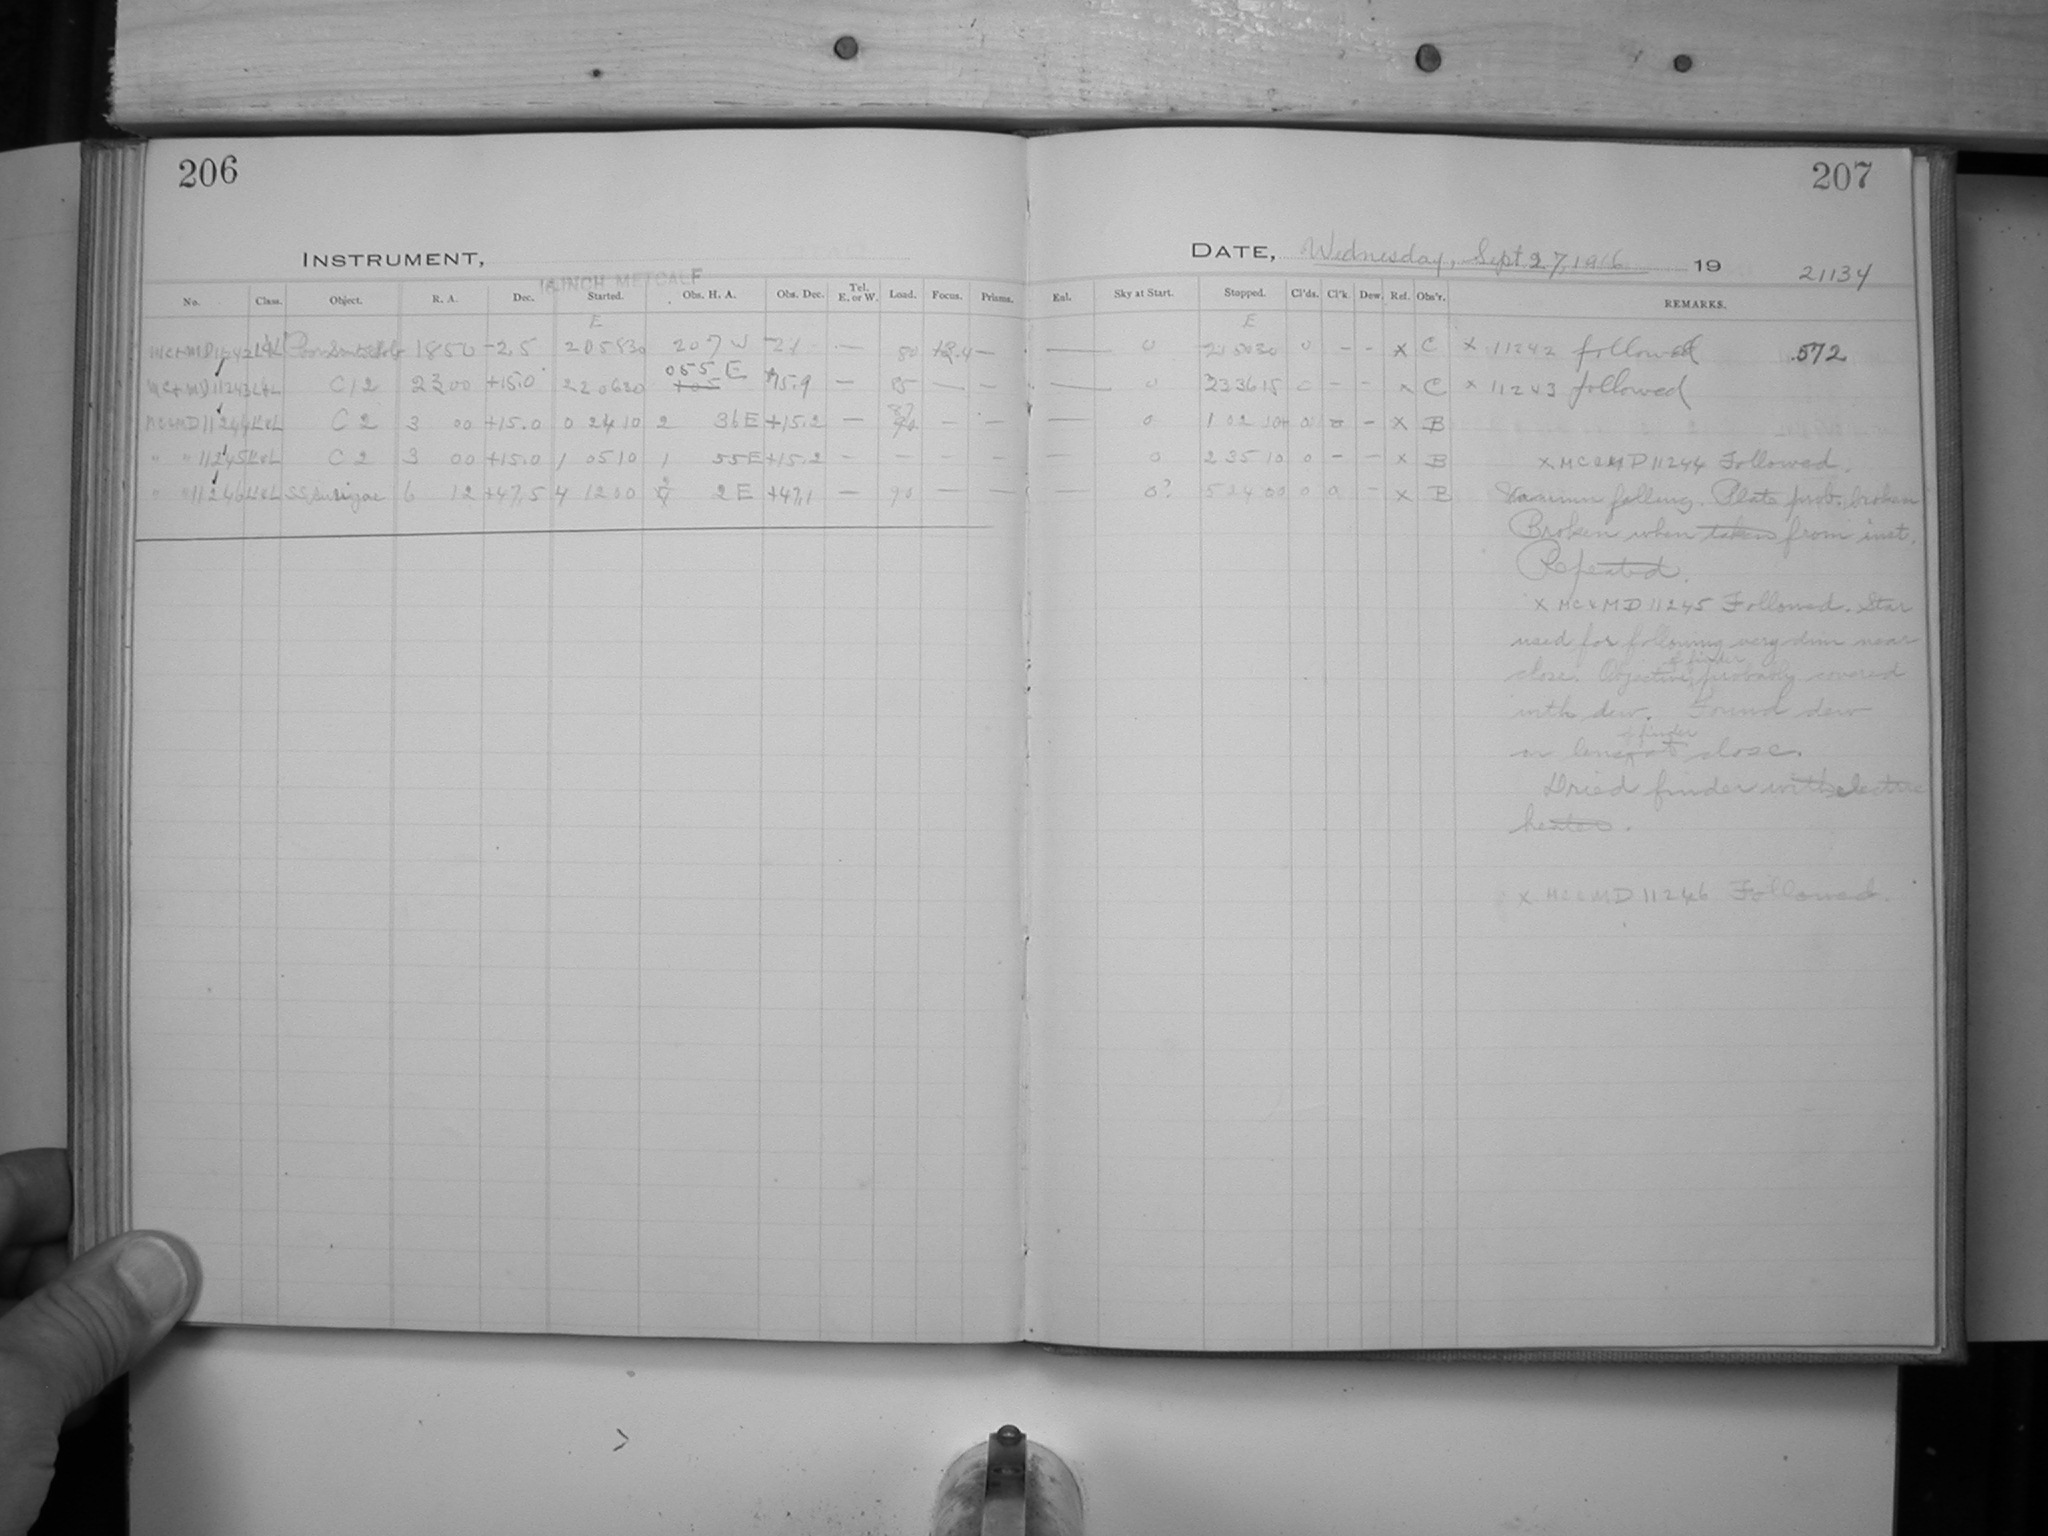 206
207
INSTRUMENT,
16 INCH METCALF
DATE, Wednesday, Sept 27, 1916 19
21134
No. Class. Object. R. A. Dec. Started. Obs. H. A. Obs. Dec. Tel. E. or W. Load. Focus. Prisms. Exl. Sky at Start. Stopped. Cl'ds. Cl'k Dew. Rel. Obs'r. REMARKS.
E E
MC+MD 11242 L+L 1850 -2.5 205830 207 W -2.1 — 80 +2.4 — — 0 215030 0 - - x C x 11242 followed 572
055 E
MC+MD 11243 L+L C12 2300 +15.0 220630 105 +15.9 — 85 — — — 0 233615 0 - - x C x 11243 followed
MC+MD 11244 L+L C2 3 00 +15.0 0 24 10 2 36 E +15.2 — — — — 0 1 02 10 0 - x B
" " 11245 L+L C2 3 00 +15.0 1 05 10 1 55 E +15.2 — — — — — 0 2 35 10 0 — — x B x MC&MD 11244 Followed.
" " 11246 L+L SS Aurigae 6 12 +47.5 4 12 00 2 2 E +47.1 — 90 — — — 0? 5 24 00 0 a - x B falling. Plate prob. broken
Broken when taken from inst.
Repeated.
x MC&MD 11245 Followed. Star
used for following very dim near
of finder
close. Objective probably covered
with dew. Found dew
of finder
on lens at close.
Dried finder with electric
heater.
x MC&MD 11246 Followed.